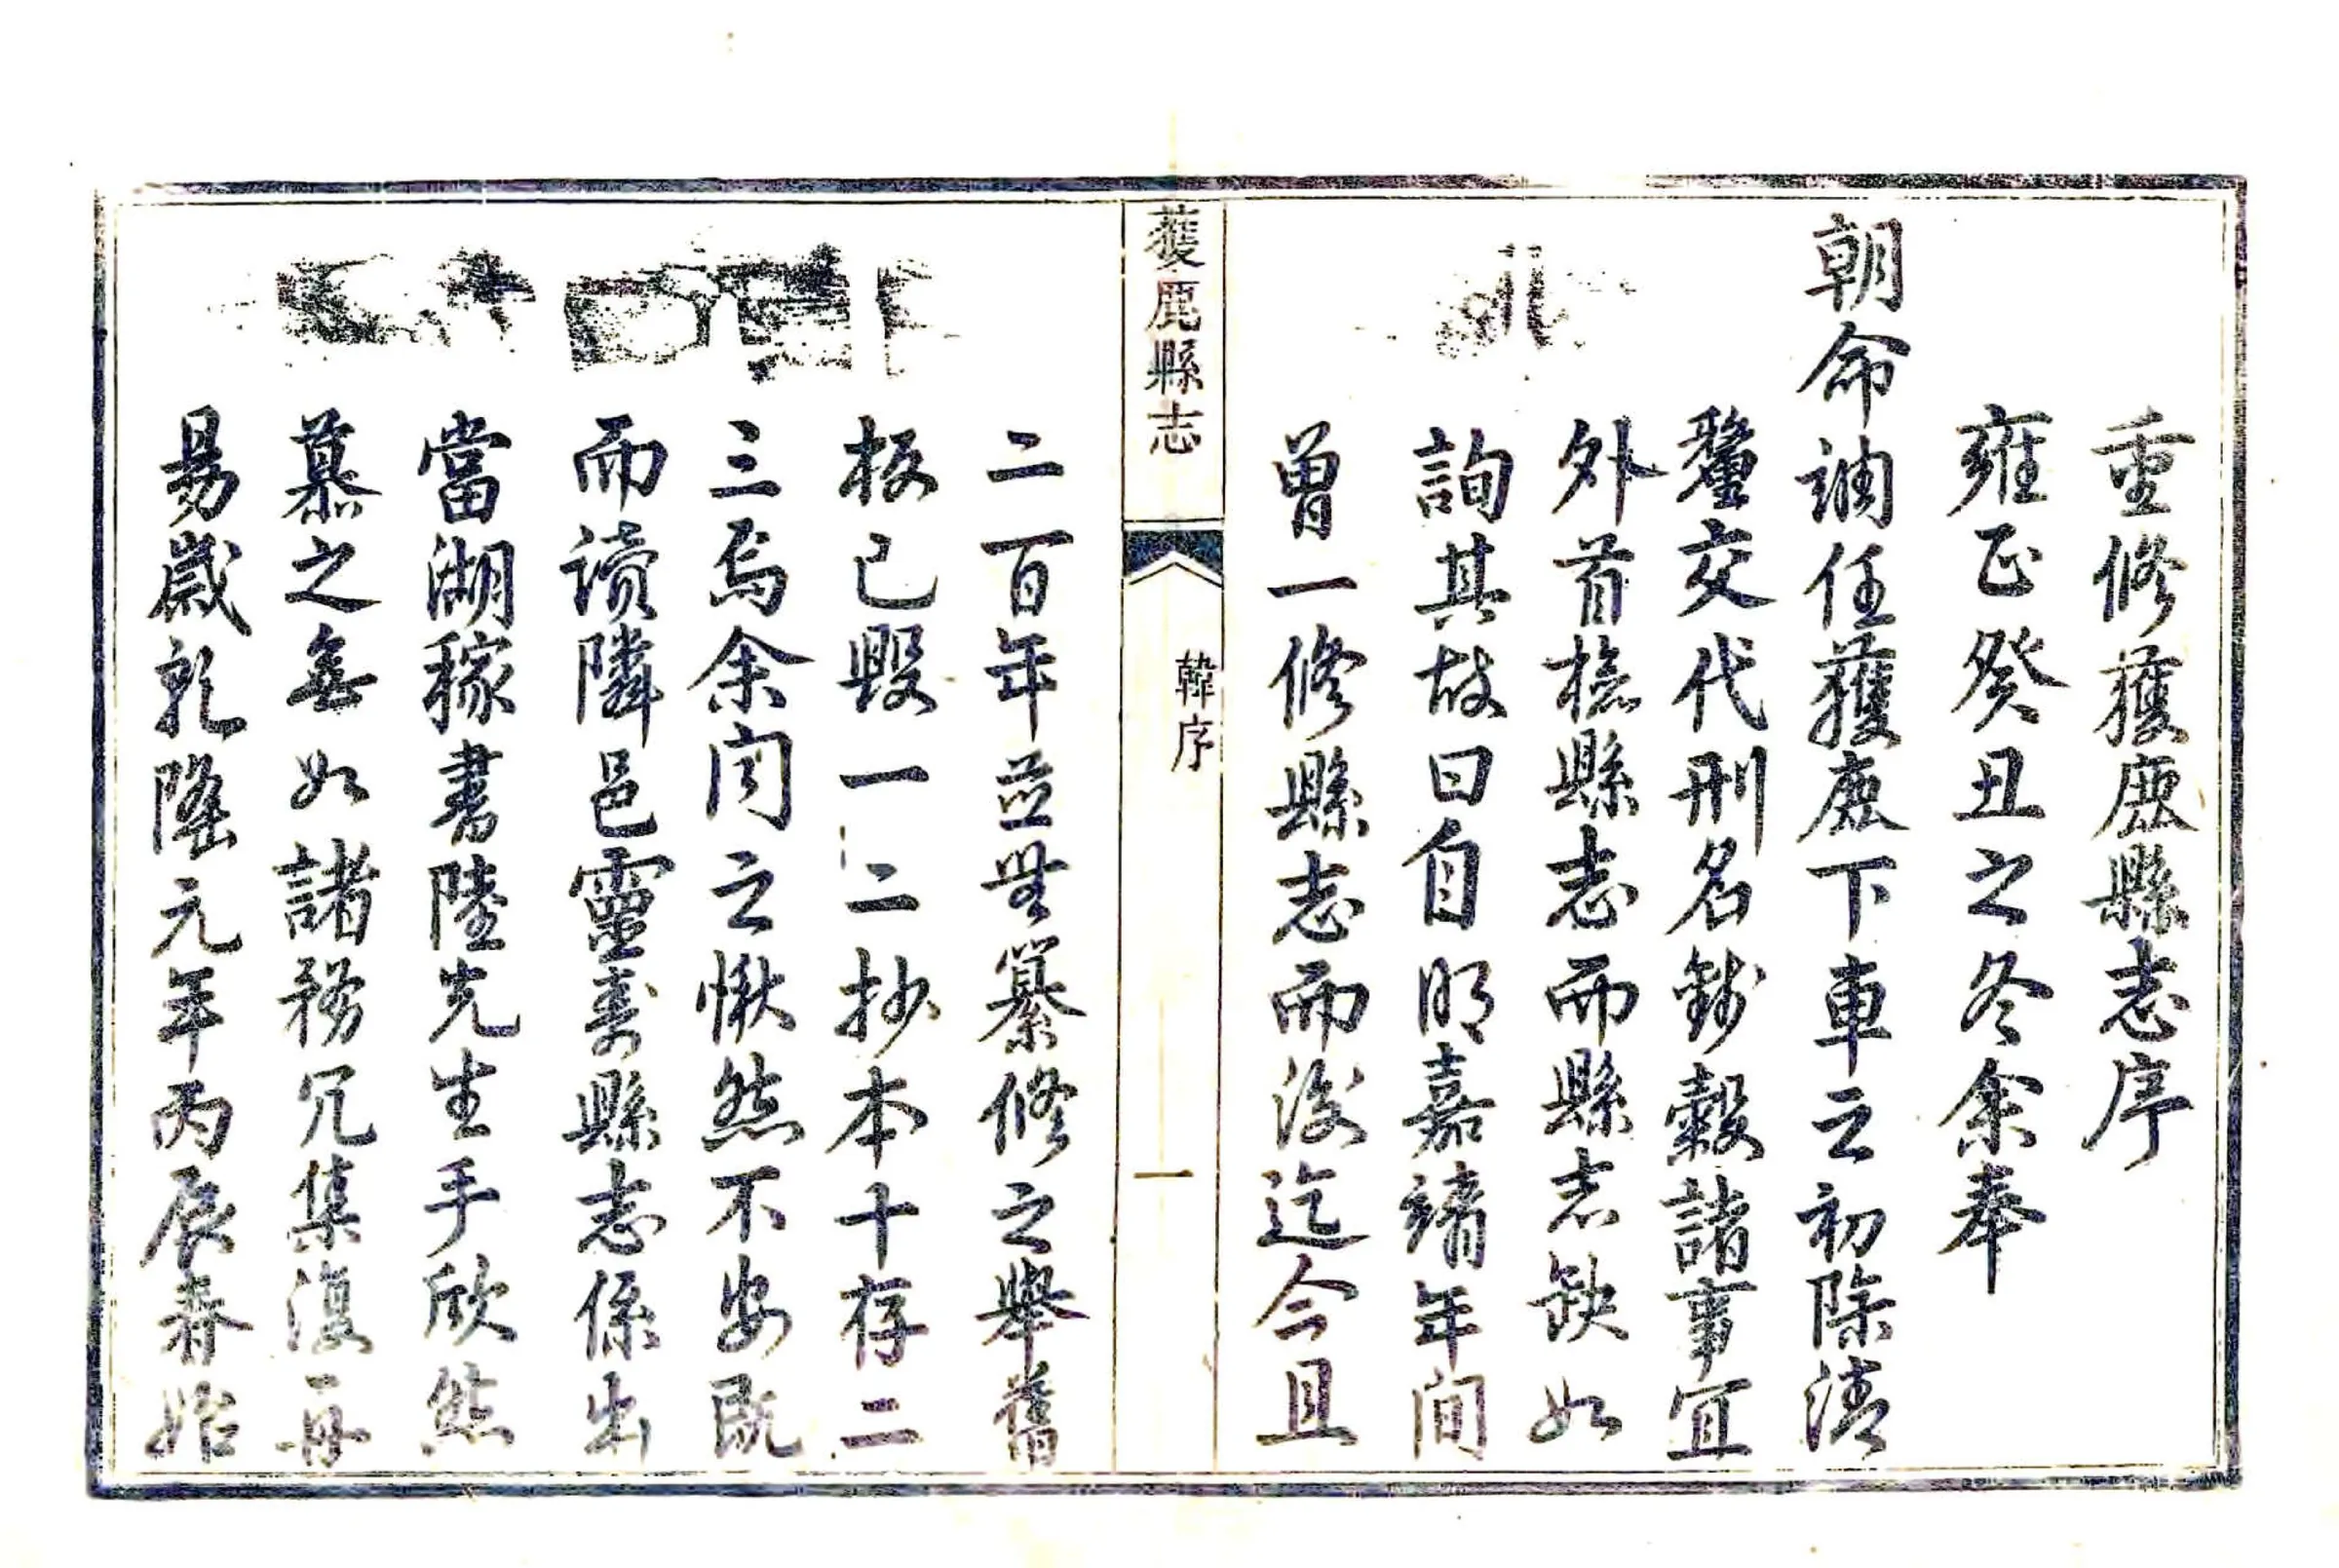 重修獲鹿縣志序
雍正癸丑之冬余奉
朝命調任獲鹿下車之初除清
釐交代刑名錢穀諸事宜
外首檢縣志而縣志缺如
詢其故曰自明嘉靖年間
曾一修縣志而後迄今且
獲鹿縣志
韓序
一
二百年並無纂修之舉舊
板已毀一二抄本十存二
三焉余聞之愀然不安既
而讀隣邑靈壽縣志係出
當湖稼書陸先生手欣然
慕之無如諸務冗集復再
易歲乾隆元年丙辰春始